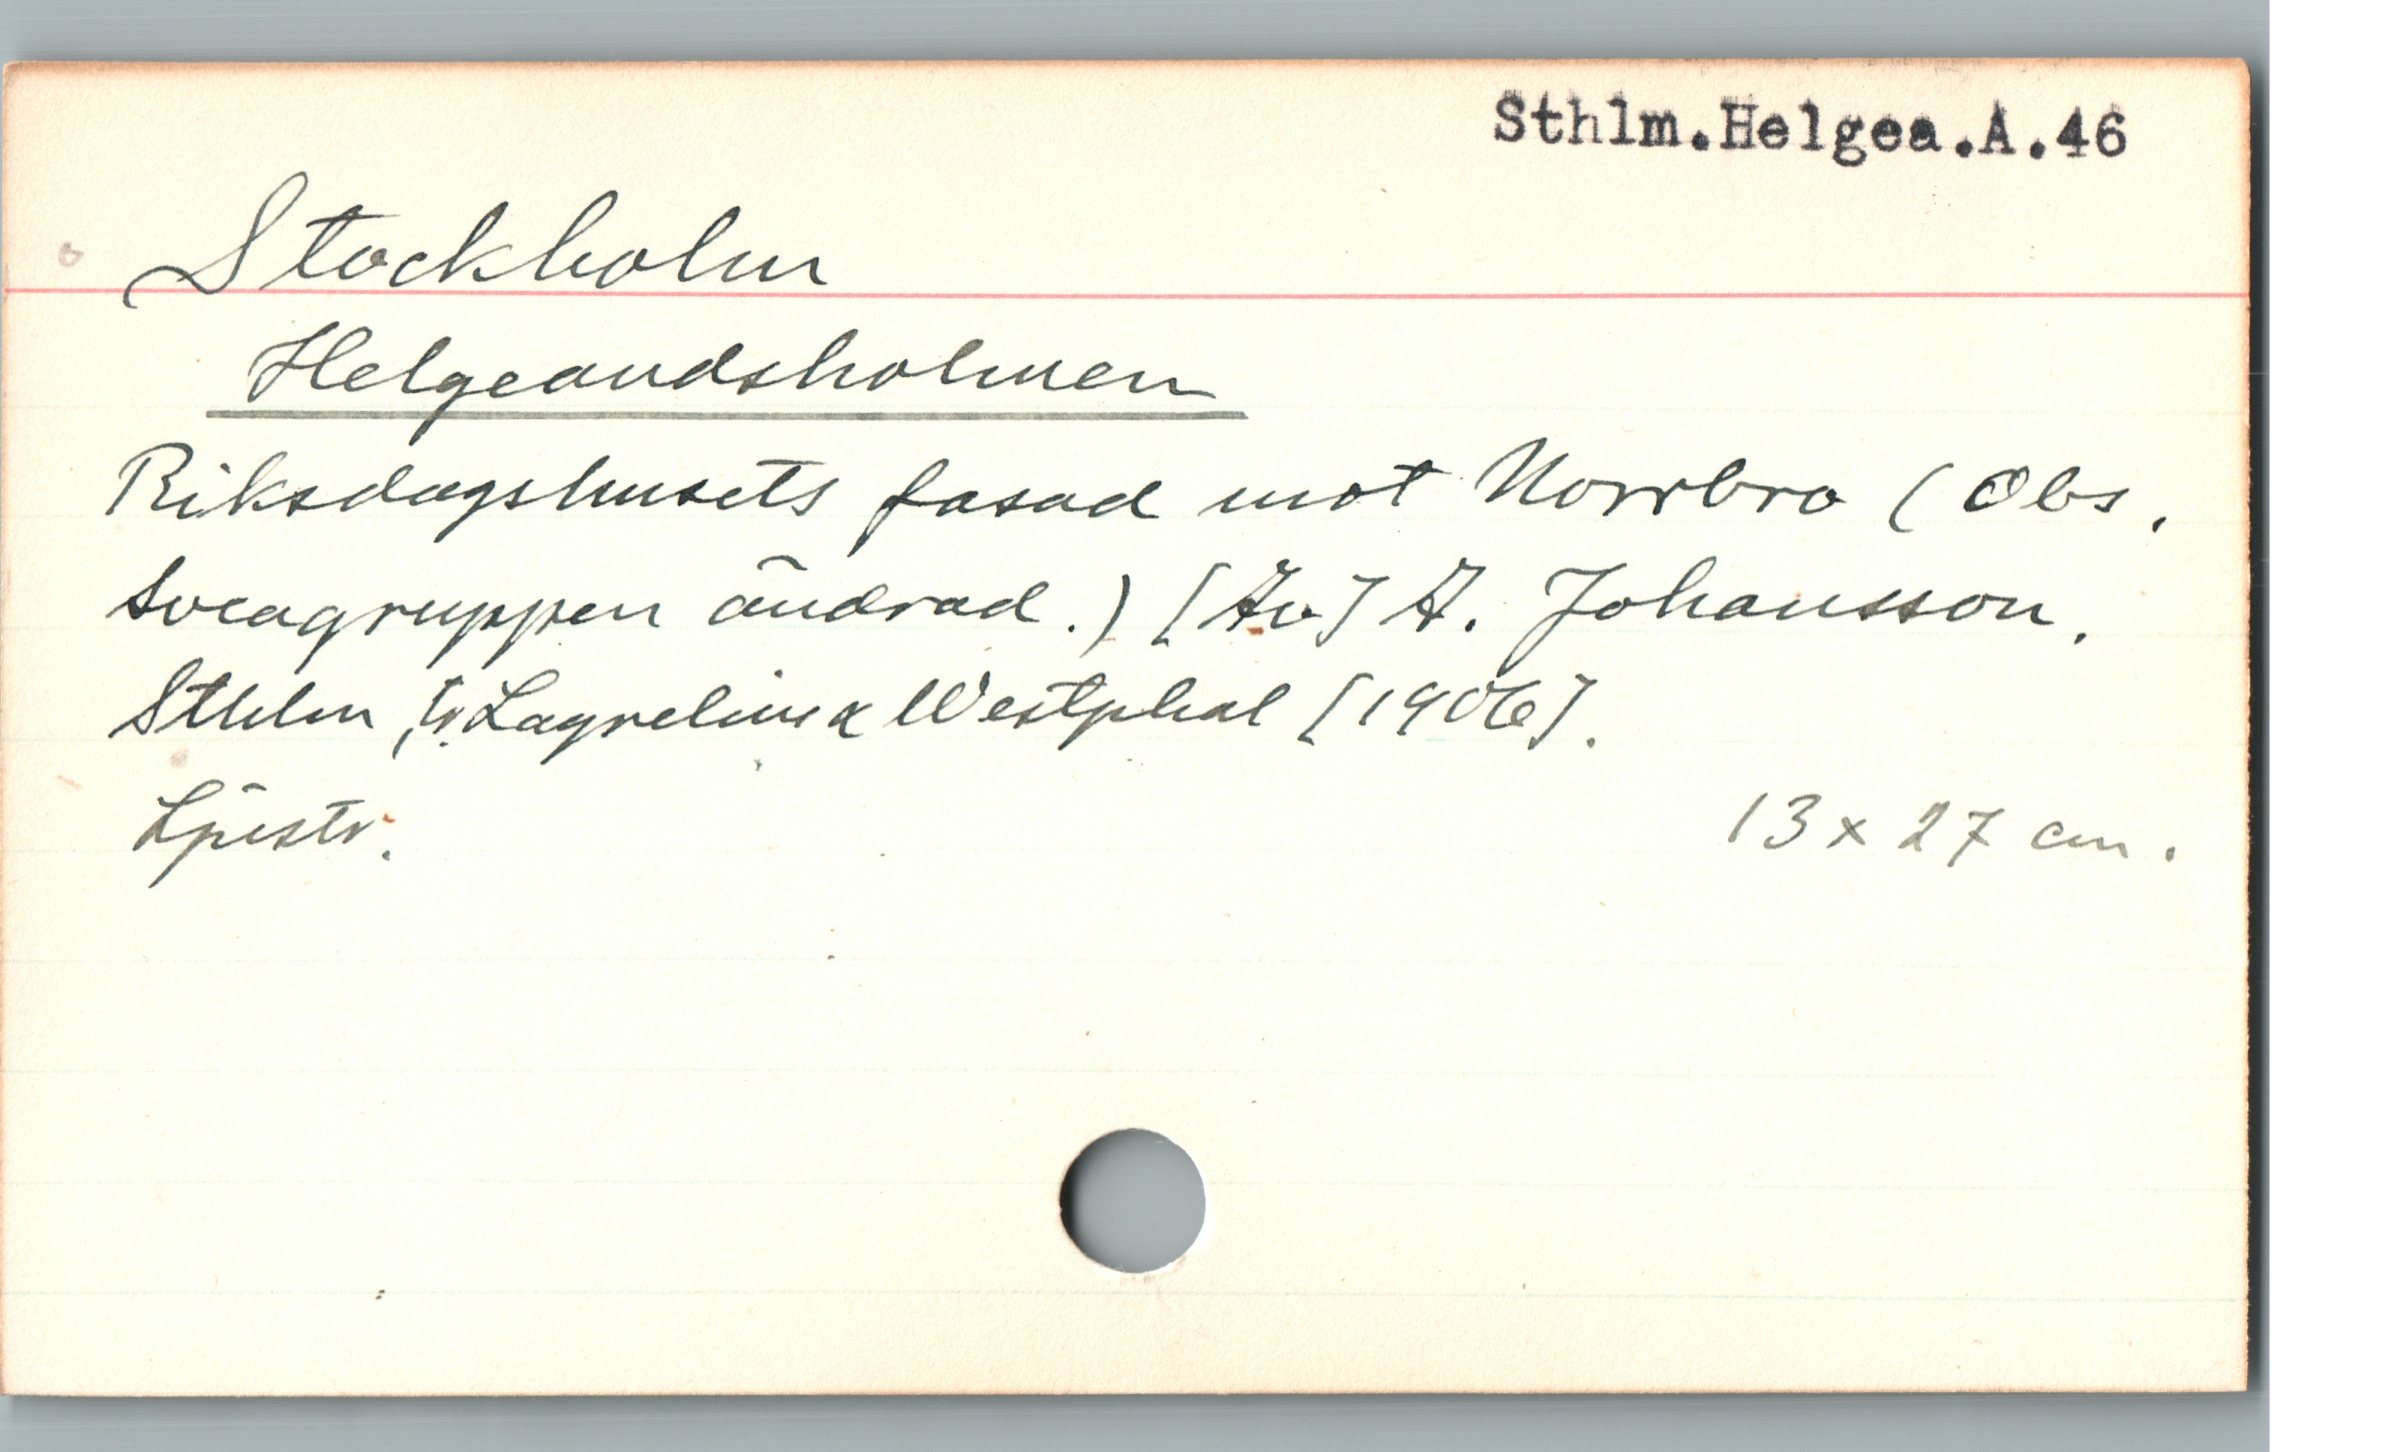 Sthlm.Helgea.A.46
Stockholm
Helgeandsholmen
Riksdagshusets fasad mot Norrbro (Obs.
Sveagruppen ändrad.) [Av] A. Johansson.
Sthlm, tr. Lagrelius & Westphal [1906].
Ljustr.
13 x 27 cm.